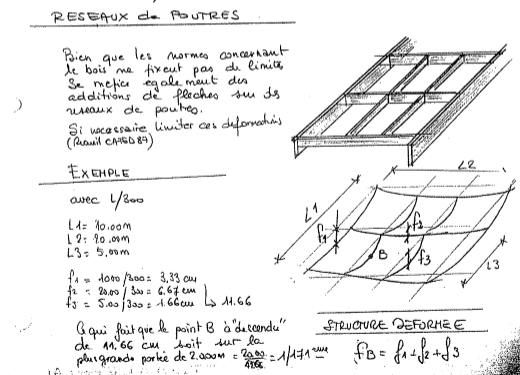 RESEAUX de POUTRES
Bien que les normes concernant
le bois ne fixent pas de limites
Se mefier egalement des
additions de fleches sur des
reseaux de poutres.
Si necessaire limiter ces deformations
EXEMPLE
avec L/300
L1= 10.00m
L2= 20.00m
L3= 5.00m
f1 = 1000/300 = 3,33 cm
f2 = 20.00/300 = 6.67 cm
f3 = 5.00/300 = 1.66cm
11.66
Ce qui fait que le point B à "descendu"
de 11,66 cm soit sur la
plus grande portée de 2.000m = 20.00/11.66 = 1/171
L2
L1
f1
f2
f3
B
L3
STRUCTURE DEFORMEE
fB = f1+f2+f3